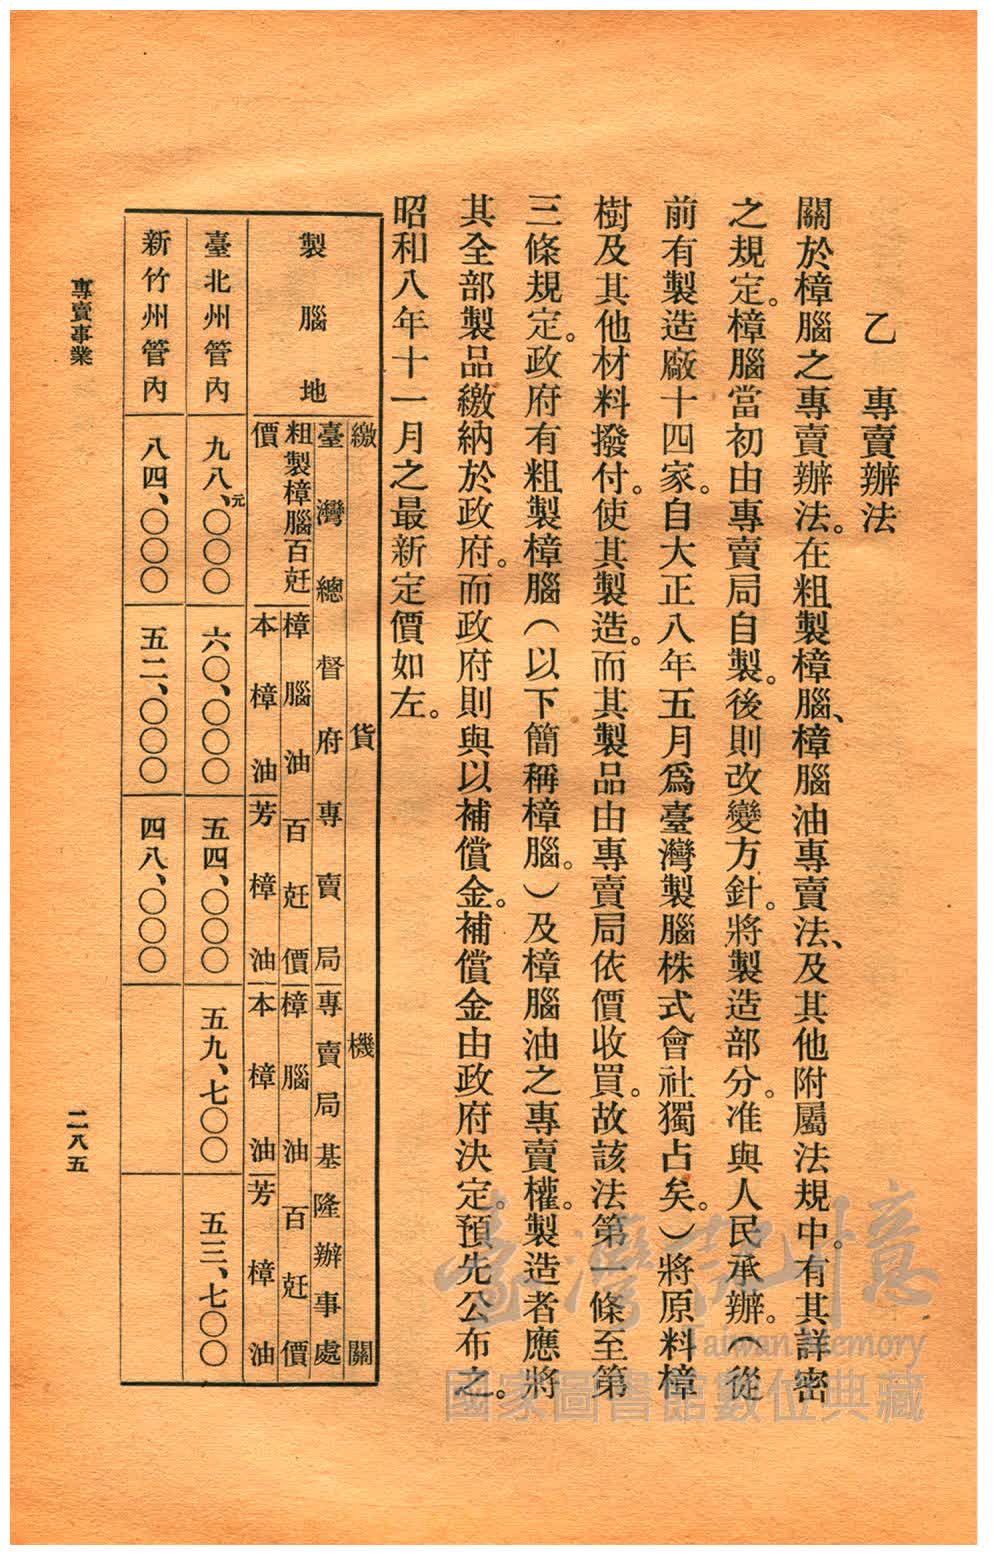 乙　專賣辦法
關於樟腦之專賣辦法。在粗製樟腦、樟腦油專賣法、及其他附屬法規中。有其詳密
之規定。樟腦當初由專賣局自製。後則改變方針。將製造部分。准與人民承辦。（從
前有製造廠十四家。自大正八年五月爲臺灣製腦株式會社獨占矣。）將原料樟
樹及其他材料撥付。使其製造。而其製品由專賣局依價收買。故該法第一條至第
三條規定。政府有粗製樟腦（以下簡稱樟腦。）及樟腦油之專賣權。製造者應將
其全部製品繳納於政府。而政府則與以補償金。補償金由政府決定。預先公布之。
昭和八年十一月之最新定價如左。
製腦地
繳貨機關
臺灣總督府專賣局
專賣局基隆辦事處
粗製樟腦百瓩價
樟腦油百瓩價
樟腦油百瓩價
本樟油
芳樟油
本樟油
芳樟油
臺北州管內
九八、〇〇〇元
六〇、〇〇〇
五四、〇〇〇
五九、七〇〇
五三、七〇〇
新竹州管內
八四、〇〇〇
五二、〇〇〇
四八、〇〇〇
專賣事業
二八五
臺灣記憶
Taiwan Memory
國家圖書館數位典藏